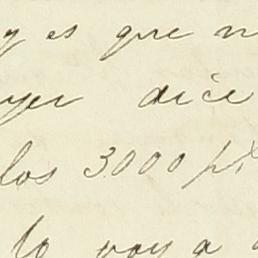 y es que n
yer dice
los 3000 pt
lo voy a